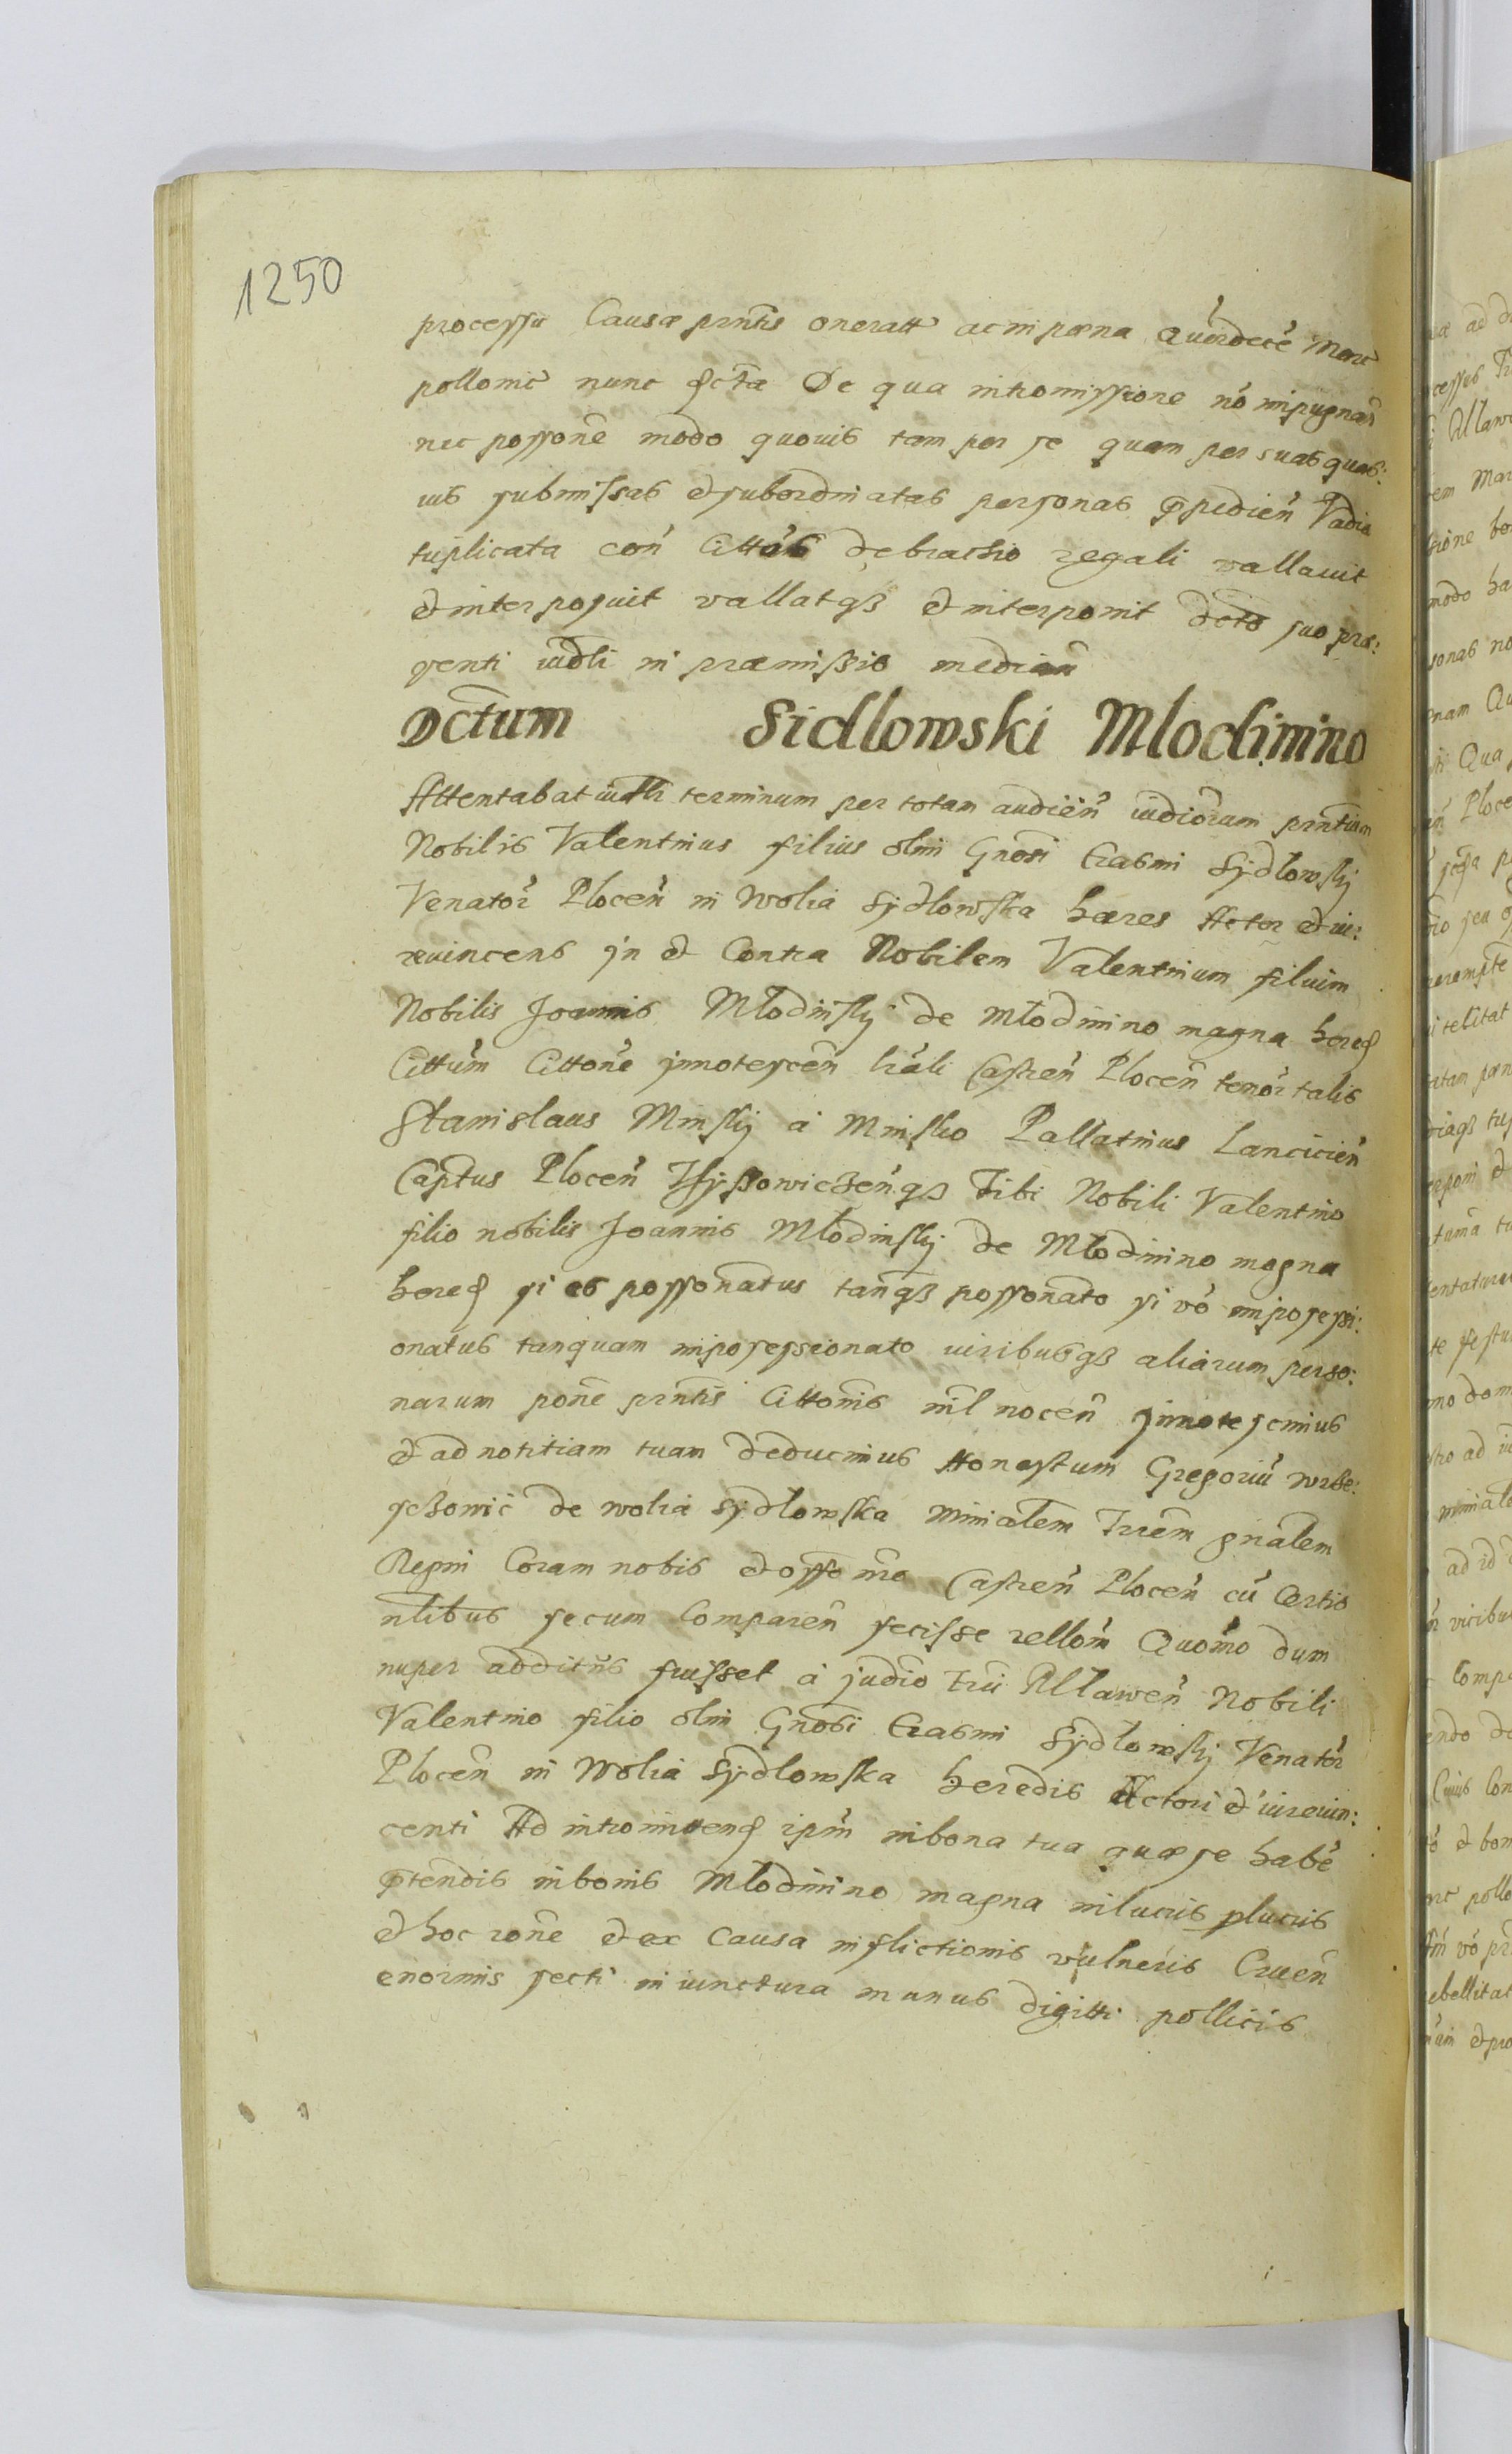 1250
processu Causæ prntis oneratt ac in pæna Quordecé Marc
pollonic nunc scta De qua intromissione nó impugnań
nec possone modo quouis tam per se quam per suas quas:
uis submissas et subordinatas personas ꝓpedień Vadia
tuplicata coń Cittás de brachio regali vallauit
et interposuit vallatqȝ et interponit dcto suo præ:
senti iudli in præmissis median
Dctum Sidlowski Mlodimino
Attentabat iudli terminum per totam audień iudiorum prntium
Nobilis Valentinus filius olim Gnosi Erasmi Sydlowskÿ
Venator Plocen in Wolia Sÿdlowska hæres Actor et iu:
reuincens in et Contra Nobilem Valentinum filium
Nobilis Joannis Mlodinskÿ de Mlodimino magna hered
Cittum Cittone innotescen lrali Castren Plocen tenor talis
Stanislaus Minskÿ á Minsko Pallatinus Lancicień
Captus Plocen Tibi Nobili Valentino
filio nobilis Joannis Mlodinskÿ de Mlodmino magna
hered si es possonatus tanqȝ possonato si vó impossessi:
onatus tanquam impossessionato viribusqȝ aliarum perso:
narum pone prntis Cittonis nil nocen innotescimus
et ad notitiam tuam deducimus Honestum Gregoriu wrze:
szowic de wolia sÿdlowska Minialem Trrem gnalem
Regni Coram nobis et offo nro Castren Plocen cu Certis
nlibus secum Comparen fecisse rellom Quomo dum
nuper additus fuisset á judio Trri Mlawen Nobili
Valentino filio olim Gnosi Erasmi Sÿdlowskÿ Venator
Plocen in Wolia Sÿdlowska heredis Actori et iureuin:
centi Ad intromittend ipm in bona tua quæ se habé
ꝓtendis in bonis Mlodmino magna in lucris plucris
et hoc rone et ex Causa inflictionis vulneris Cruen
enormis secti in iunctura manus digitti pollicis